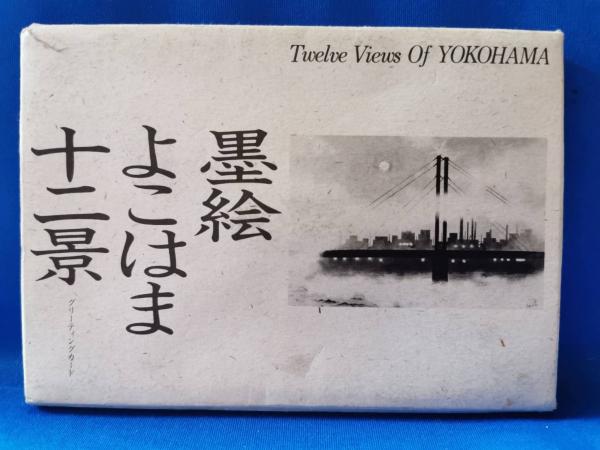 Twelve Views Of YOKOHAMA
墨絵
よこはま
十二景
グリーティングカード